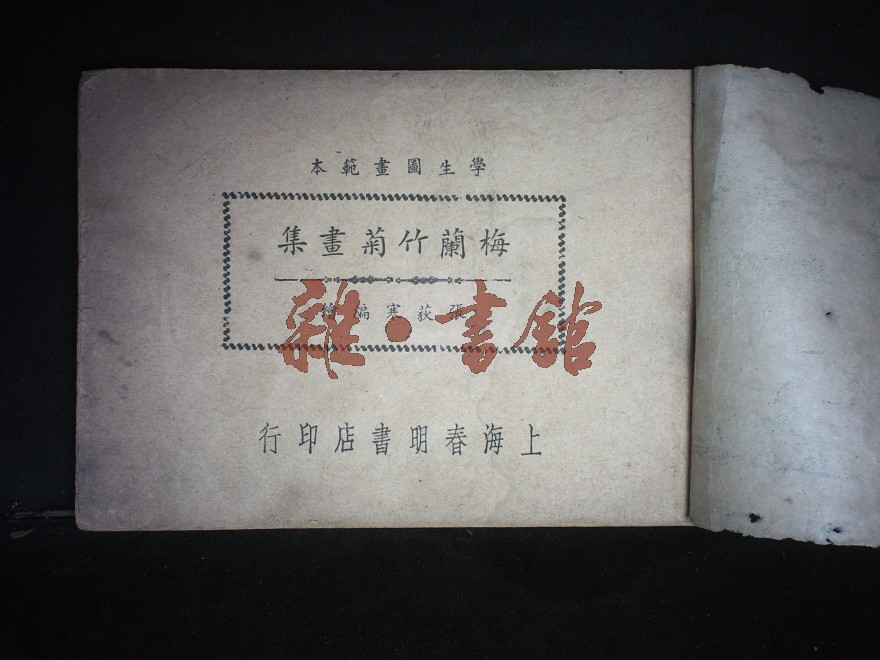 學生圖畫範本
梅蘭竹菊畫集
張荻寒編繪
雜·書館
上海春明書店印行